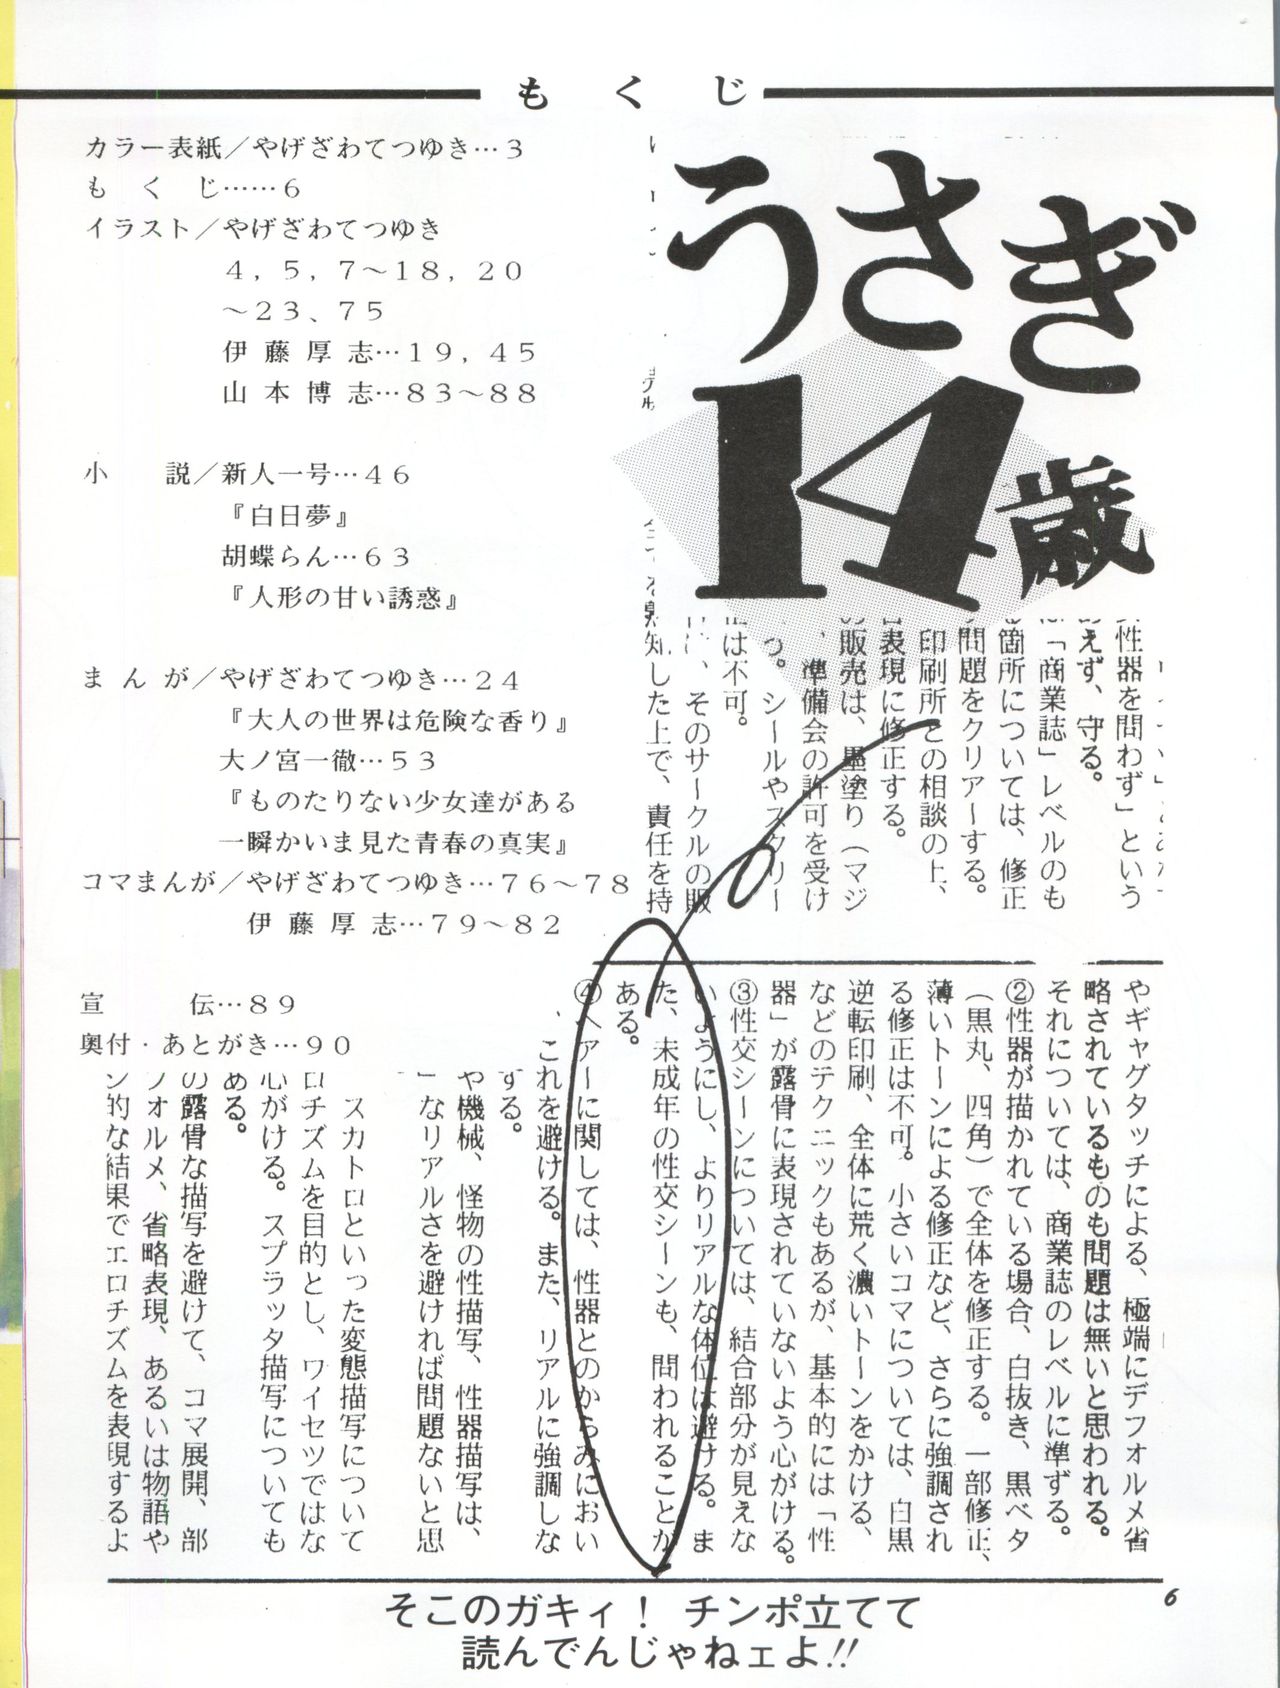 もくじ
カラー表紙／やげざわてつゆき…3
もくじ……6
イラスト／やげざわてつゆき
4，5，7～18，20
～23、75
伊藤厚志…19，45
山本博志…83～88
小説／新人一号…46
『白日夢』
胡蝶らん…63
『人形の甘い誘惑』
まんが／やげざわてつゆき…24
『大人の世界は危険な香り』
大ノ宮一徹…53
『ものたりない少女達がある
一瞬かいま見た青春の真実』
コマまんが／やげざわてつゆき…76～78
伊藤厚志…79～82
宣伝…89
奥付・あとがき…90
うさぎ
14歳
性器を問わず」という
えず、守る。
「商業誌」レベルのも
箇所については、修正
問題をクリアーする。
印刷所との相談の上、
表現に修正する。
の販売は、墨塗り（マジ
、準備会の許可を受け
つ。シールやスクリー
は不可。
、そのサークルの販
知した上で、責任を持
やギャグタッチによる、極端にデフォルメ省
略されているものも問題は無いと思われる。
それについては、商業誌のレベルに準ずる。
②性器が描かれている場合、白抜き、黒ベタ
（黒丸、四角）で全体を修正する。一部修正、
薄いトーンによる修正など、さらに強調され
る修正は不可。小さいコマについては、白黒
逆転印刷、全体に荒く濃いトーンをかける、
などのテクニックもあるが、基本的には「性
器」が露骨に表現されていないよう心がける。
③性交シーンについては、結合部分が見えな
いようにし、よりリアルな体位は避ける。ま
た、未成年の性交シーンも、問われることが
ある。
④ヘアーに関しては、性器とのからみにおい
、これを避ける。また、リアルに強調しな
する。
や機械、怪物の性描写、性器描写は、
」なリアルさを避ければ問題ないと思
スカトロといった変態描写について
ロチズムを目的とし、ワイセツではな
心がける。スプラッタ描写についても
ある。
の露骨な描写を避けて、コマ展開、部
フォルメ、省略表現、あるいは物語や
ン的な結果でエロチズムを表現するよ
6
そこのガキィ！ チンポ立てて
読んでんじゃねェよ!!